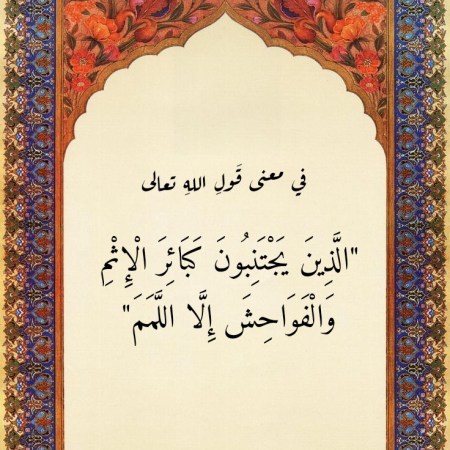 في معنى قَولِ اللهِ تعالى
"الَّذِينَ يَجْتَنِبُونَ كَبَائِرَ الْإِثْمِ
وَالْفَوَاحِشَ إِلَّا اللَّمَمَ"